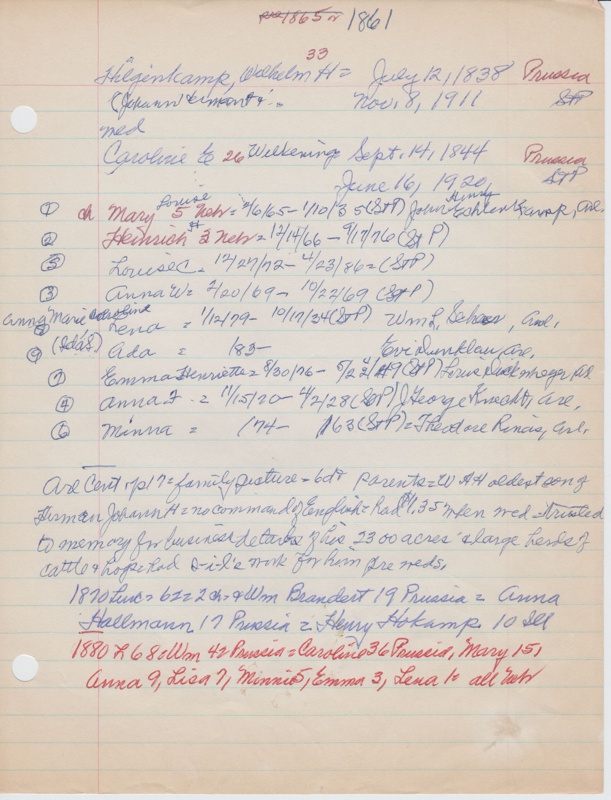 pre 1865 or 1861
33
Hilgenkamp, Wilhelm H = July 12, 1838 Prussia
(Johann = Nov. 8, 1911 St P
med
Caroline E 26 Wilkening Sept. 14, 1844 Prussia
June 16, 1920 St P
Louise Henry
① ch Mary 5 Nebr = 2/6/65 - 1/10/35 (St P) John Kamp, Are.
② Heinrich H 3 Nebr = 12/14/66 - 9/17/76 (St P)
⑤ Louise C = 12/27/72 - 4/23/86 = (St P)
③ Anna W = 2/20/69 - 10/22/69 (St P)
Anna Marie Carolina
⑧ Lena = 1/12/79 - 10/17/34 (St P) Wm L, Scheer, Are.
(Ida S) ⑨ Ada = 183 - Ev. Dunklau, Are.
⑦ Emma Henriette = 8/30/76 - (St P) Louis
④ Anna F. = 11/15/70 - 4/2/28 (St P) J George Knecht, Are.
⑥ Minna = 174 - 163 (St P) = Theodore Rincs, Are.
Are Cent - p 17 = family picture = 6 dt parents = W H H oldest son of
Herman Johann H = no command of English = had $1.35 when med = trusted
to memory for business details of his 2300 acres & large herds of
cattle & hogs = had s-i-l's work for him pre weds.
1870 = 62 = 2 ch = & Wm Brandert 19 Prussia = Anna
Hallmann 17 Prussia = Henry Hokamp 10 Ill
1880 L 68 = Wm 42 Prussia = Caroline 36 Prussia, Mary 15,
Anna 9, Lisa 7, Minnie 5, Emma 3, Lena 1 = all Nebr